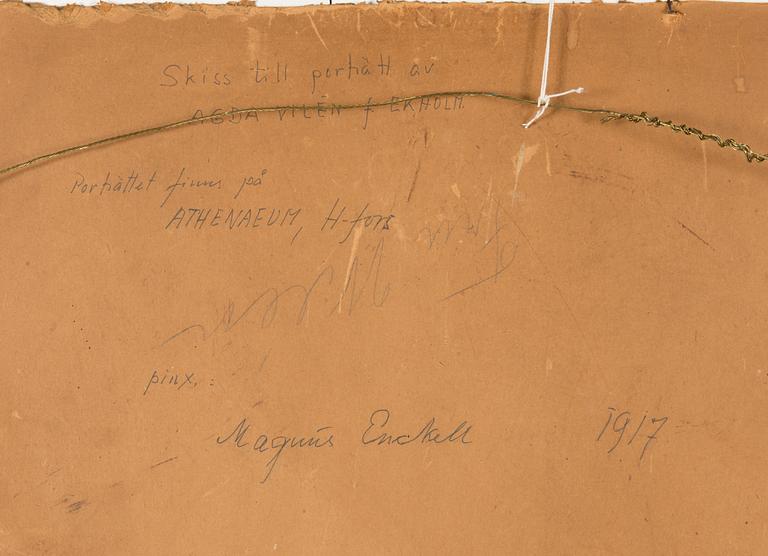 Skiss till porträtt av
AGDA VILÉN f EKHOLM
Porträttet finns på
ATHENAEUM, H-fors
pinx. :
Magnus Enckell 1917